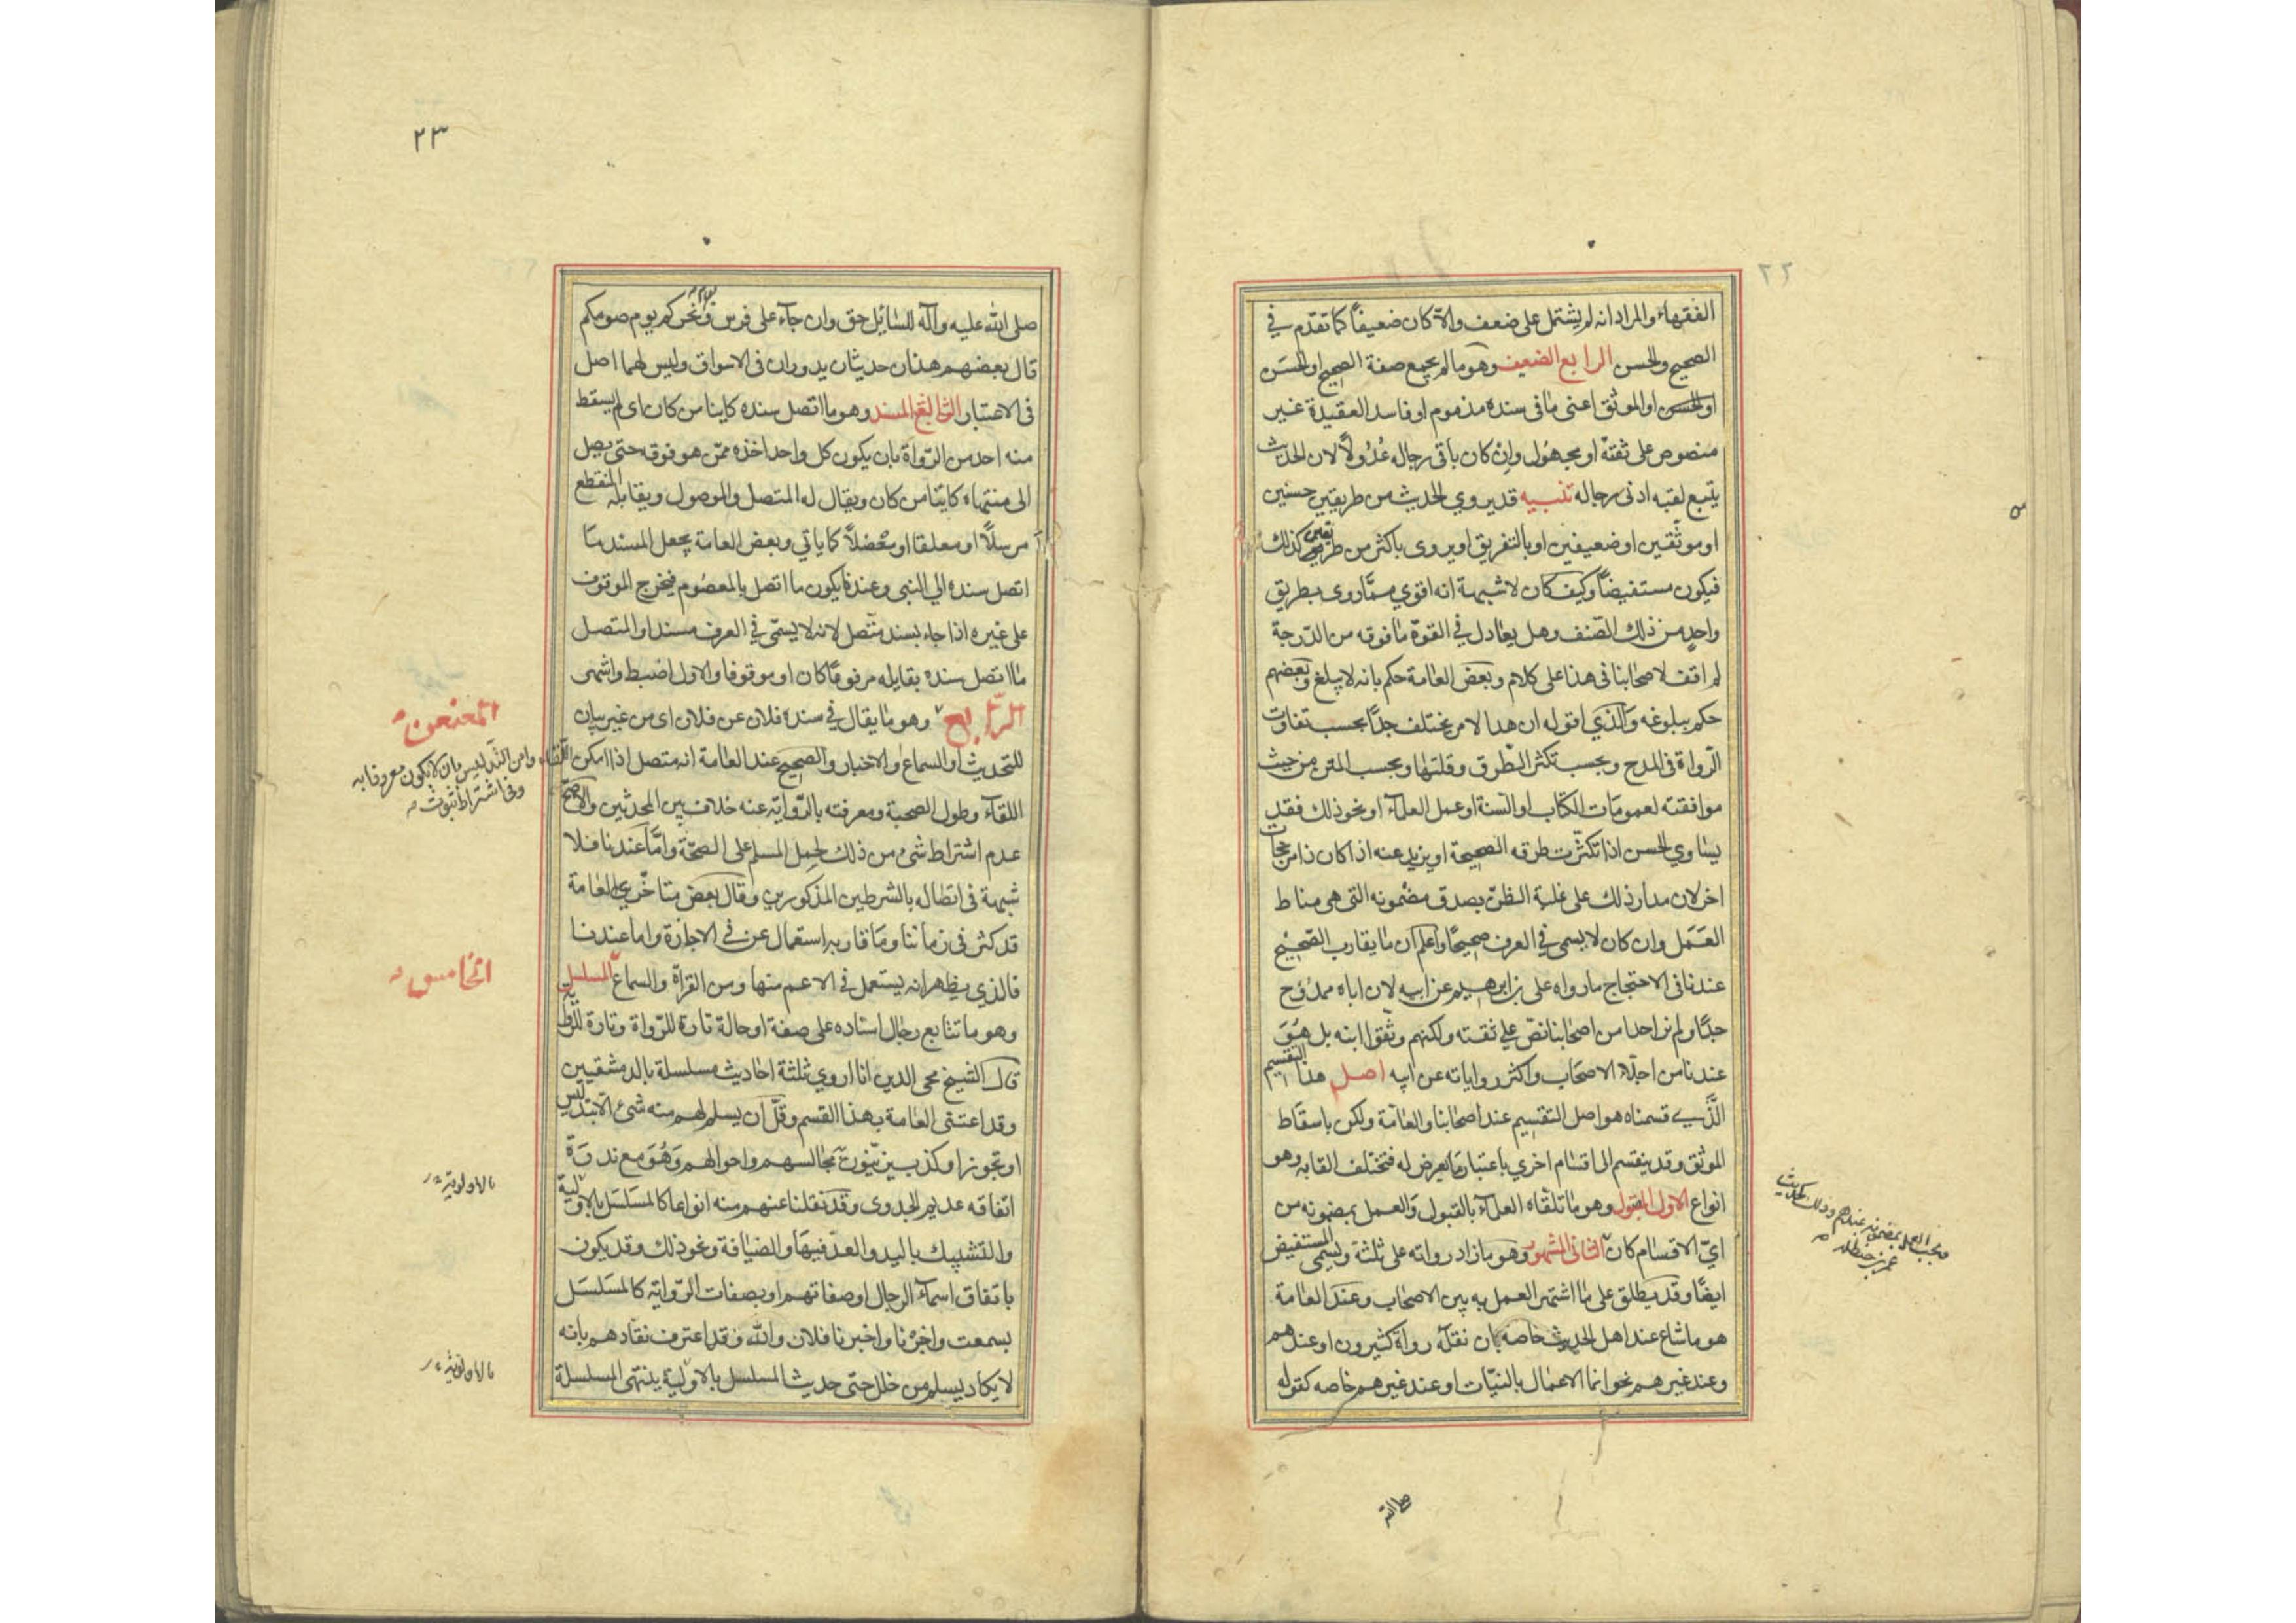 ٢٢
الفقهاء والمراد انه لم يشتمل على ضعف والا كان ضعيفاً كما تقدّم في
الصحيح والحسن الرابع الضعيف وهو ما لم يجمع صفة الصحيح او الحسَن
او الحسن او الموثق اعنى ما في سنده مذموم او فاسد العقيدة غير
منصوص على ثقته او مجهول وان كان باقى رجاله عُدُولاً لان الحديث
يتبع لقبه ادنى رجاله تنبيه قد يروي الحديث من طريقين حسنين
او موثّقين او ضعيفين او بالتفريق او يروى باكثر من طريقين كذلك
فيكون مستفيضاً وكيف كان لا شبهة انه اقوي ممّا روى بطريق
واحدٍ من ذلك الصّنف وهل يعادل في القوّة ما فوقه من الدّرجة
لم اقف لاصحابنا في هذا على كلام وبعض العامة حكم بانه لا يبلغ وبعضهم
حكم ببلوغه وَالّذي اقوله ان هذا الامر يختلف جدّا بحسب تفاوت
الرّواة في المدح وبحسب تكثر الطّرق وقلتها وبحسب المتن من حيث
موافقته لعمومات الكتاب او السنة او عمل العلمآء او نحو ذلك فقد
يساوي الحسن اذا تكثّرت طرقه الصحيحة او يزيد عنه اذا كان ذا مرجحات
اخر لان مدار ذلك على غلبة الظنّ بصدق مضمونه التى هي مناط
العَمَل وان كان لا يسمى في العرف صحيحاً واعلم ان ما يقارب الصّحيح
عندنا في الاحتجاج ما رواه على بن ابرهيم عن ابيه لان اباه ممدُوح
جدّا ولم نر احدا من اصحابنا نصّ علي ثقته ولكنهم وثّقوا ابنه بل هُوَ
عندنا من اجلّاء الاصحَاب واكثر رواياته عن ابيه اصل هذا التقسيم
الَّذي قسمناه هو اصل التقسيم عند اصحابنا والعامّة ولكن باسقاط
الموثق وقد ينقسم الى اقسام اخري باعتبار ما يعرض له فتختلف القابه وهو
انواع الاول المقبول وهو ما تلقّاه العلمآء بالقبول وَالعمل بمضمونه من
ايّ الاقسَام كان الثاني المشهور وهو ما زاد رواته على ثلثة ويسمى المستفيض
ايضًا وقد يطلق على ما اشتهر العمل به بين الاصحَاب وعند العامة
هو ما شاع عند اهل الحديث خاصه بان نقله رواة كثيرون او عندهم
وعند غيرهم نحو انما الاعمال بالنيّات او عند غيرهم خاصه كقوله
٢٣
صلى الله عليه وآله للسائل حق وان جآء على فرس ونحركم يوم صومكم
قال بعضهم هذان حديثان يدوران في الاسواق وليس لهما اصل
في الاعتبار الثالث المسند وهو ما اتصل سنده كاينا من كان اى لم يسقط
منه احد من الرّواة بان يكون كل واحد اخذه ممّن هو فوقه حتى يصل
الى منتهاه كاينا من كان ويقال له المتصل والموصول ويقابله المنقطع
مرسلاً او معلقا او معضلاً كما ياتي وبعض العامة يجعل المسند ما
اتصل سنده الي النبي وعندنا يكون ما اتصل بالمعصُوم فيخرج الموقوف
على غيره اذا جاء بسند متّصل لانه لا يسمّى في العرف مسندا والمتصل
ما اتصل سنده بقايله مرفوعًا كان او موقوفا والاول اضبط واشهى
الرّابع وهو ما يقال في سنده فلان عن فلان اى من غير بيان
المعنعن
للتحديث او السماع والاخبار والصحيح عند العامة انه متصل اذا امكن اللقاء
وامن التدليس بان لا يكون معروفا به
وفي اشتراط ثبوت
اللقآء وطول الصحبة ومعرفته بالرّواية عنه خلاف بين المحدثين والاصح
عدم اشتراط شئ من ذلك لحمل المسلم على الصحّة وامَّا عندنا فلا
شبهة في اتصاله بالشرطين المذكورين وقال بعض متاخّري العامة
قد كثر في زماننا وما قاربه استعمال عن في الاجازة واما عندنا
الخامس
فالذي يظهر انه يستعمل في الاعم منها ومن القراة والسماع المسلسل
وهو ما تتابع رجال اسناده على صفة او حالة تارة للرّواة وتارة للرواية
قال الشيخ محى الدين انا اروي ثلثة احاديث مسلسلة بالدمشقيين
وقد اعتنى العامة بهذا القسم وقلّ ان يسلم لهم منه شئ الا بتدليس
او تجوز او كذب يزيّنون به مجالسهم واحوالهم وَهُوَ مع ندرة
بالاولوية
اتفاقه عديم الجدوى وقد نقلنا عنهم منه انواعا كالمسَلسَل بالاولية
والتشبيك باليد والعدّ فيها والضيافة ونحو ذلك وقد يكون
باتفاق اسمآء الرجال او صفاتهم او بصفات الرّواية كالمسَلسَل
بسمعت واخبرنا واخبرنا فلان والله وقد اعترف نقادهم بانه
بالاولوية
لا يكاد يسلم من خلل حتى حديث المسلسل بالاولية ينتهى المسلسلة